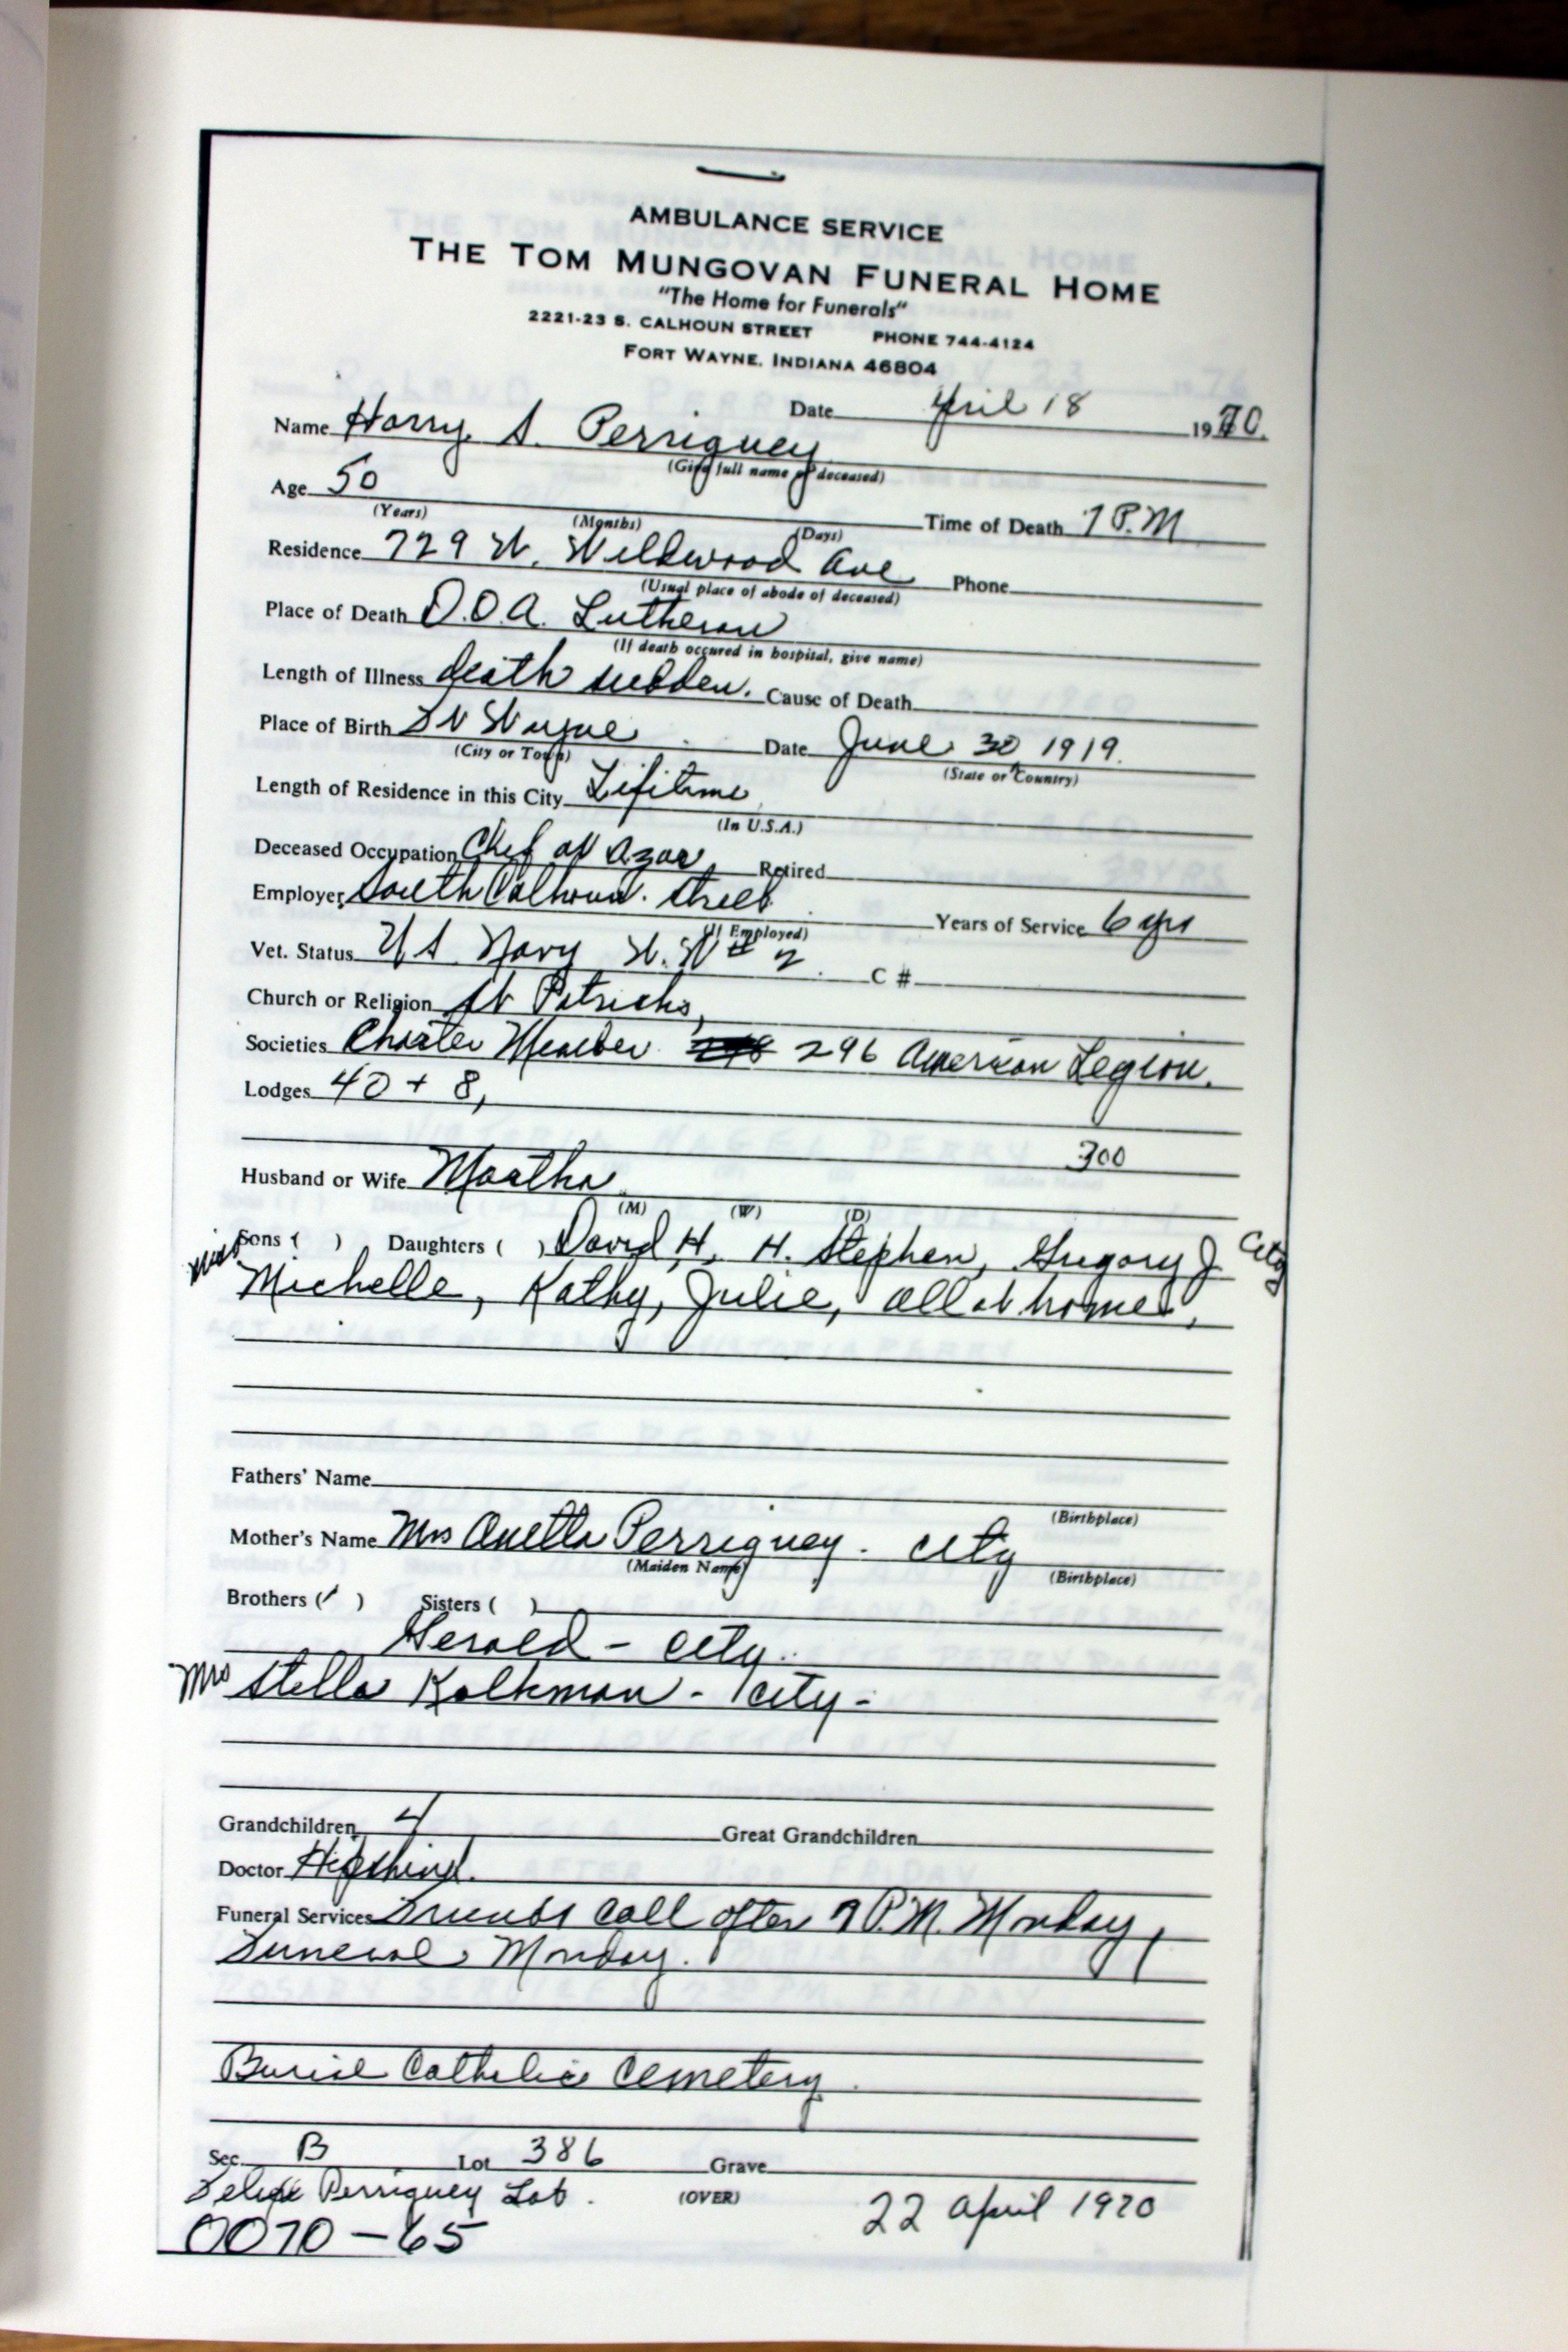 AMBULANCE SERVICE
THE TOM MUNGOVAN FUNERAL HOME
"The Home for Funerals"
2221-23 S. CALHOUN STREET PHONE 744-4124
FORT WAYNE, INDIANA 46804
Date April 18 1970.
Name Harry A. Perriguey
(Give full name of deceased)
Age 50 Time of Death 7 P.M
(Years) (Months) (Days)
Residence 729 W. Wildwood Ave Phone
(Usual place of abode of deceased)
Place of Death D.O.A. Lutheran
(If death occured in hospital, give name)
Length of Illness death sudden. Cause of Death
Place of Birth Ft Wayne Date June 30 1919.
(City or Town) (State or Country)
Length of Residence in this City Lifetime
(In U.S.A.)
Deceased Occupation Chef at Azar Retired
Employer South Calhoun. Street Years of Service 6 yrs
(If Employed)
Vet. Status U S Navy W.W # 2. C #
Church or Religion St Patricks,
Societies Charter Member 296 American Legion.
Lodges 40 + 8,
300
Husband or Wife Martha
(M) (W) (D)
Sons ( ) Daughters ( ) David H, H. Stephen, Gregory J City
Michelle, Kathy, Julie, all at home,
Fathers' Name
(Birthplace)
Mother's Name Mrs Quetta Perriguey. City
(Maiden Name) (Birthplace)
Brothers ( ) Sisters ( )
Gerald - City.
Mrs Stella Kolkman - City -
Grandchildren 4 Great Grandchildren
Doctor
Funeral Services Friends call after 7 P.M. Monday,
Funeral Monday.
Burial Catholic Cemetery.
Sec. B Lot 386 Grave
Perriguey Lot. (OVER) 22 April 1970
0070-65